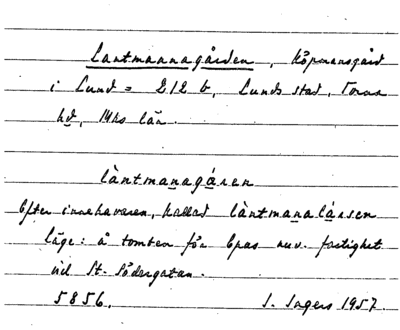 Lantmannagården, Köpmansgård
i Lund = 212 b, Lunds stad, Torna
hd, Mhs län.
làntmanagáren
Efter innehavaren, kallad làntmanalársen
läge: å tomten för Epas nuv. fastighet
vid St. Södergatan.
5856. I. Ingers 1957.